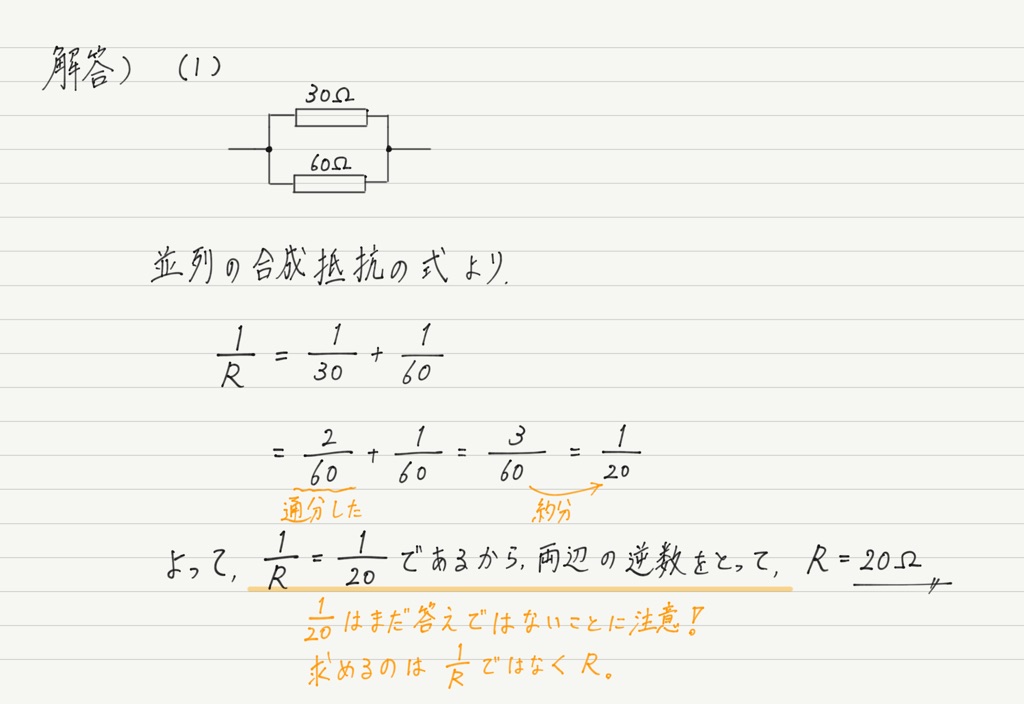 解答) (1)
30Ω
60Ω
並列の合成抵抗の式より.
1/R = 1/30 + 1/60
= 2/60 + 1/60 = 3/60 = 1/20
通分した 約分
よって, 1/R = 1/20 であるから, 両辺の逆数をとって, R = 20Ω
1/20 はまだ答えではないことに注意!
求めるのは 1/R ではなく R。